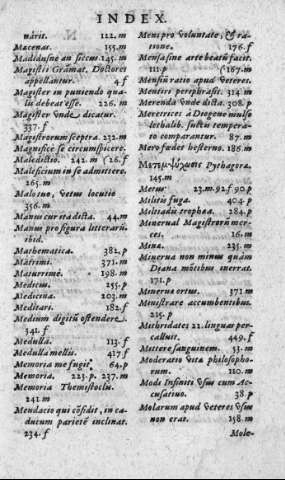 INDEX.
nâris. 122.m
Macenas. 155.m
Madidusne an siccus 145.m
Magistri Grãmat. Doctores
appellantur. 4.f
Magister in puniendo qua-
lis debeat esse. 226.m
Magister vnde dicatur.
337.f
Magistrorum sceptra. 232.m
Magnificè se circumspicere.
Maledictio. 242.m (26.f
Maleficium in se admittere.
265.m
Malo tuo, vetus locutio
356.m
Manus cur ita dicta. 44.m
Manus pro figura litterarũ.
ibid.
Mathematica. 382.p
Matrimi. 371.m
Maturrimè. 198.m
Medicus. 255.p
Medicina. 203.m
Meditari. 182.f
Medium digitũ ostendere
341.f
Medulla. 113.f
Medulla mollis. 417.f
Memoria me fugit. 64.p
Memoria. 223.p. 237.m
Memoria Themistoclis.
241.m
Mendacio qui cõfidit, in ca-
ducum parietẽ inclinat.
234.f
Mens pro voluntate, & ra-
tione. 176.f
Mensa sine arte beatũ facit.
311.p (167.m
Mensiũ ratio apud veteres.
Mentiri periphrasis. 314.m
Merenda vnde dicta. 308.p
Meretrices à Diogene mulso
lethalib. suctis tempera-
to comparantur. 87.m
Mero fœdet hesterno. 186.m
Μετεμψύχωσις Pythagoræ.
145.m
Metus 23.m. 92.f 90.p
Militis fuga. 404.p
Miltiadis trophæa. 284.p
Minerual Magistrorũ mer-
ces. 16.m
Mina. 235.m
Minerua non minus quàm
Diana mõtibus inerrat.
171.p
Minerua ortus. 371.m
Ministrare accumbentibus.
215.p
Mithridates 22. linguas per-
calluit. 449.f
Mittere sanguinem. 53.m
Moderatio vitæ philosopho-
rum. 120.m
Modi Infiniti vsus cum Ac-
cusatiuo. 38.p
Molarum apud veteres vsus
non erat. 158.m
Mole-